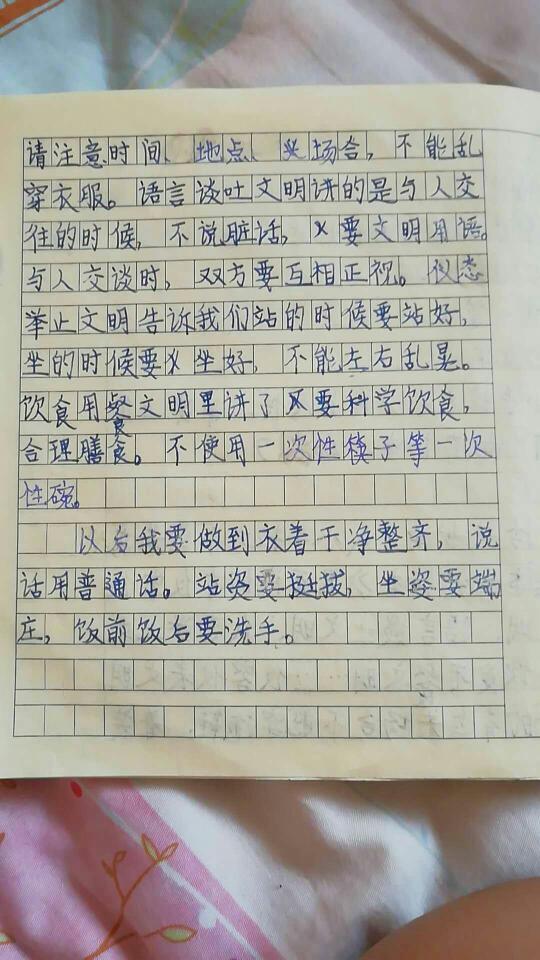 请注意时间、地点、场合，不能乱
穿衣服。语言谈吐文明讲的是与人交
往的时候，不说脏话，要文明用语。
与人交谈时，双方要互相正视。仪态
举止文明告诉我们站的时候要站好，
坐的时候要坐好，不能左右乱晃。
饮食用餐文明里讲了要科学饮食，
合理膳食。不使用一次性筷子等一次
性碗。
以后我要做到衣着干净整齐，说
话用普通话。站姿要挺拔，坐姿要端
庄，饭前饭后要洗手。